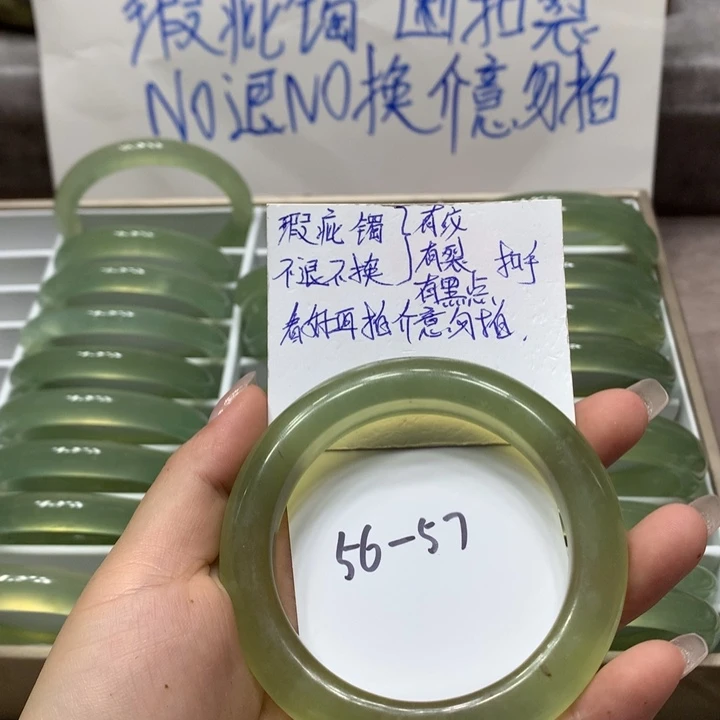 瑕疵镯 扣裂
NO退NO换介意勿拍
瑕疵镯 有纹
不退不换 有裂 扣手
有黑点
看好再拍介意勿拍.
56-57